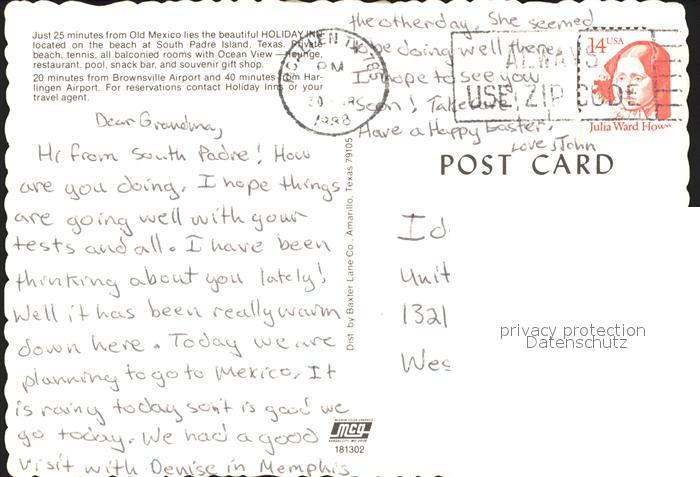 Just 25 minutes from Old Mexico lies the beautiful HOLIDAY INN
located on the beach at South Padre Island, Texas. Private
beach, tennis, all balconied rooms with Ocean View — lounge,
restaurant, pool, snack bar, and souvenir gift shop.
20 minutes from Brownsville Airport and 40 minutes from Har-
lingen Airport. For reservations contact Holiday Inns or your
travel agent.
Dear Grandma,
Hi from South Padre! How
are you doing. I hope things
are going well with your
tests and all. I have been
thinking about you lately!
Well it has been really warm
down here. Today we are
planning to go to Mexico. It
is rainy today so it is good we
go today. We had a good
visit with Denise in Memphis
the other day. She seemed
to be doing well there.
I hope to see you
soon! Take
Have a Happy Easter!
Love, John
PM
1988
ALWAYS
USE ZIP CODE
14 USA
Julia Ward Howe
POST CARD
Dist. by Baxter Lane Co., Amarillo, Texas 79105
Id
Unit
1321
Wes
privacy protection
Datenschutz
mcg
181302